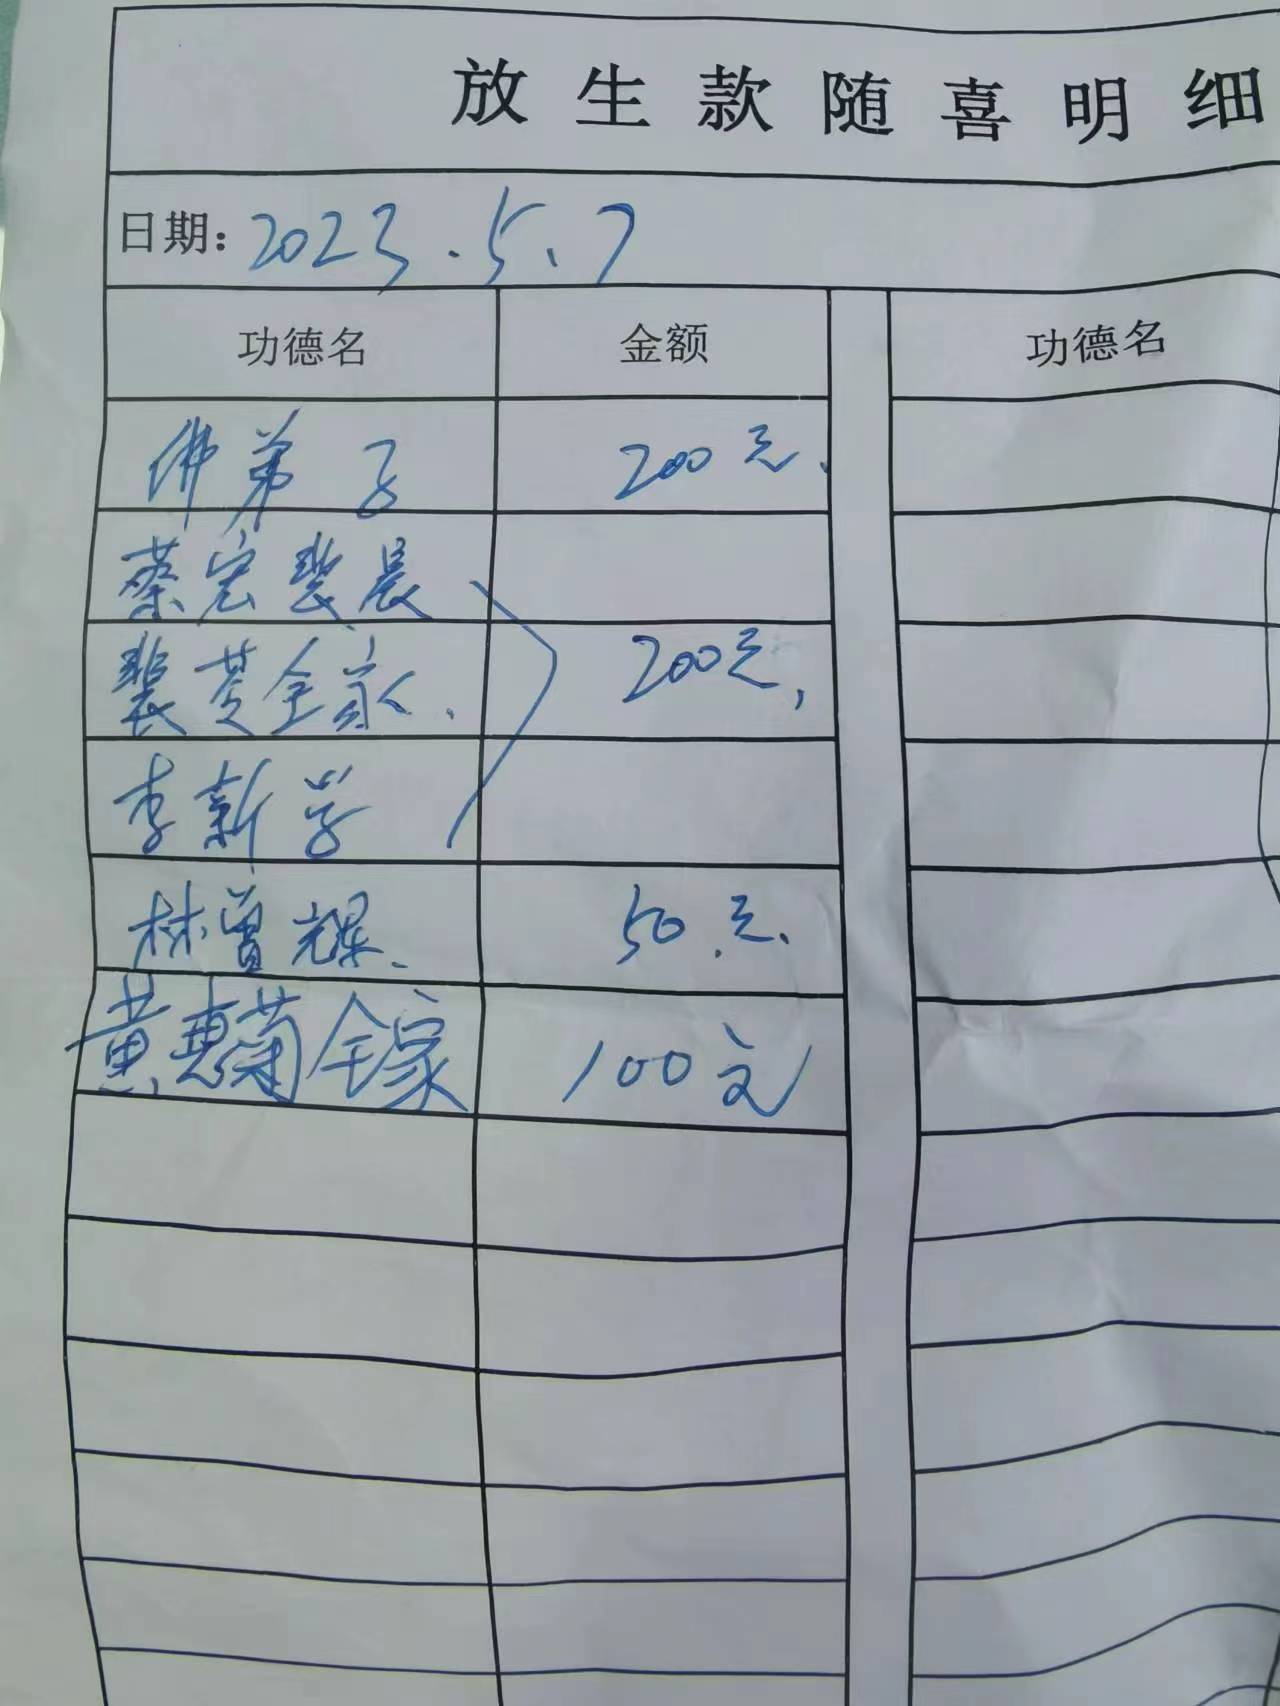 放生款随喜明细
日期: 2023.5.7
功德名 金额 功德名
佛弟子 200元.
蔡宏裴晨
裴芝全家. 200元,
李新学
林曾耀. 50.元.
黄惠菊全家 100元